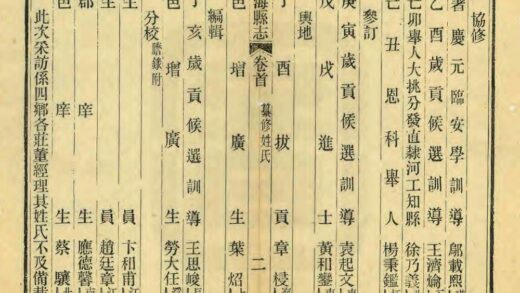 協修
署慶元臨安學訓導鄔載熙
乙酉歲貢候選訓導王濟
己卯舉人大挑分發直隸河工知縣徐乃
己丑恩科舉人楊秉鑑
參訂
庚寅歲貢候選訓導袁起文
戊戌進士黃和鑾
輿地
丁酉拔貢章梫
海縣志 卷首 纂修姓氏 二
邑增廣生葉炤
編輯
丁亥歲貢候選訓導王思
邑增廣生勞大任
分校 謄錄附
生員卞和甫
生員趙廷章
郡庠生應德馨
邑庠生蔡驤
此次采訪係四鄉各莊董經理其姓氏不及備載